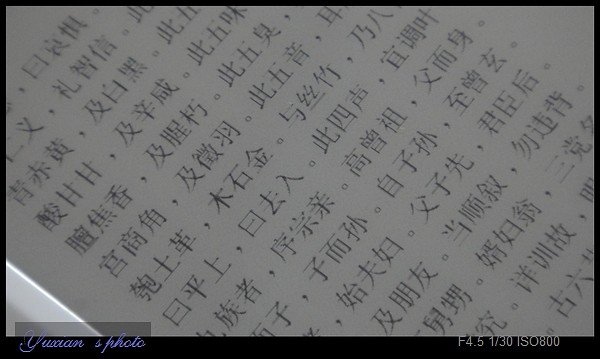 ，曰哀惧。
义，礼智信。此五
青赤黄，及白黑。此五
酸甘甘，及辛咸。此五味
膻焦香，及腥朽。此五臭，
宫商角，及徵羽。此五音，耳
匏土革，木石金。与丝竹，乃八
曰平上，曰去入。此四声，宜调叶
族者，序宗亲。高曾祖，父而身。
而子，子而孙。自子孙，至曾玄。
，始夫妇。父子先，君臣后。
及朋友。当顺叙，勿违背。
舅甥。婿妇翁，三党名
究。详训故，明
古六
Yuxuan 's photo
F4.5 1/30 ISO800